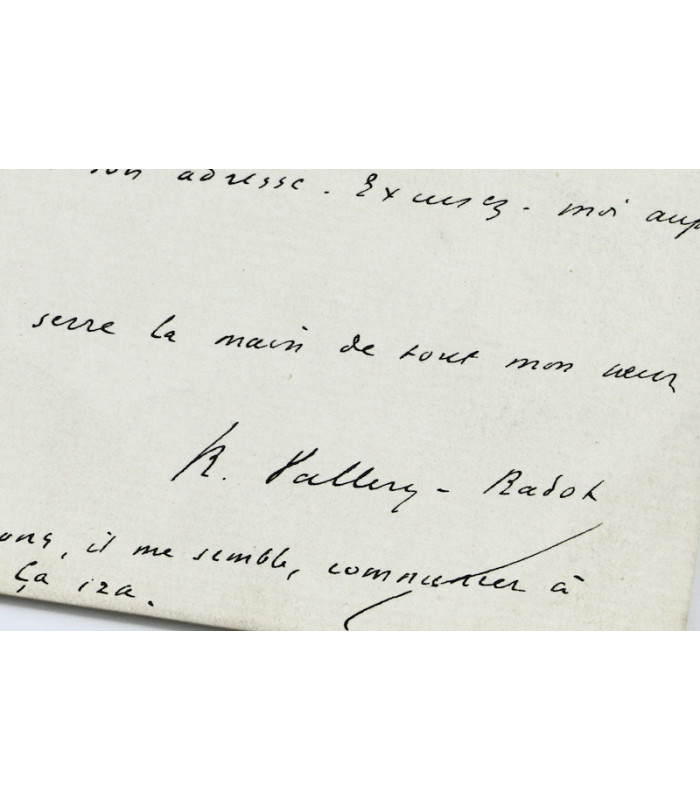 son adresse. Excusez-moi aup
serre la main de tout mon cœur
R. Vallery-Radot
ons, il me semble, communier à
Ça ira.